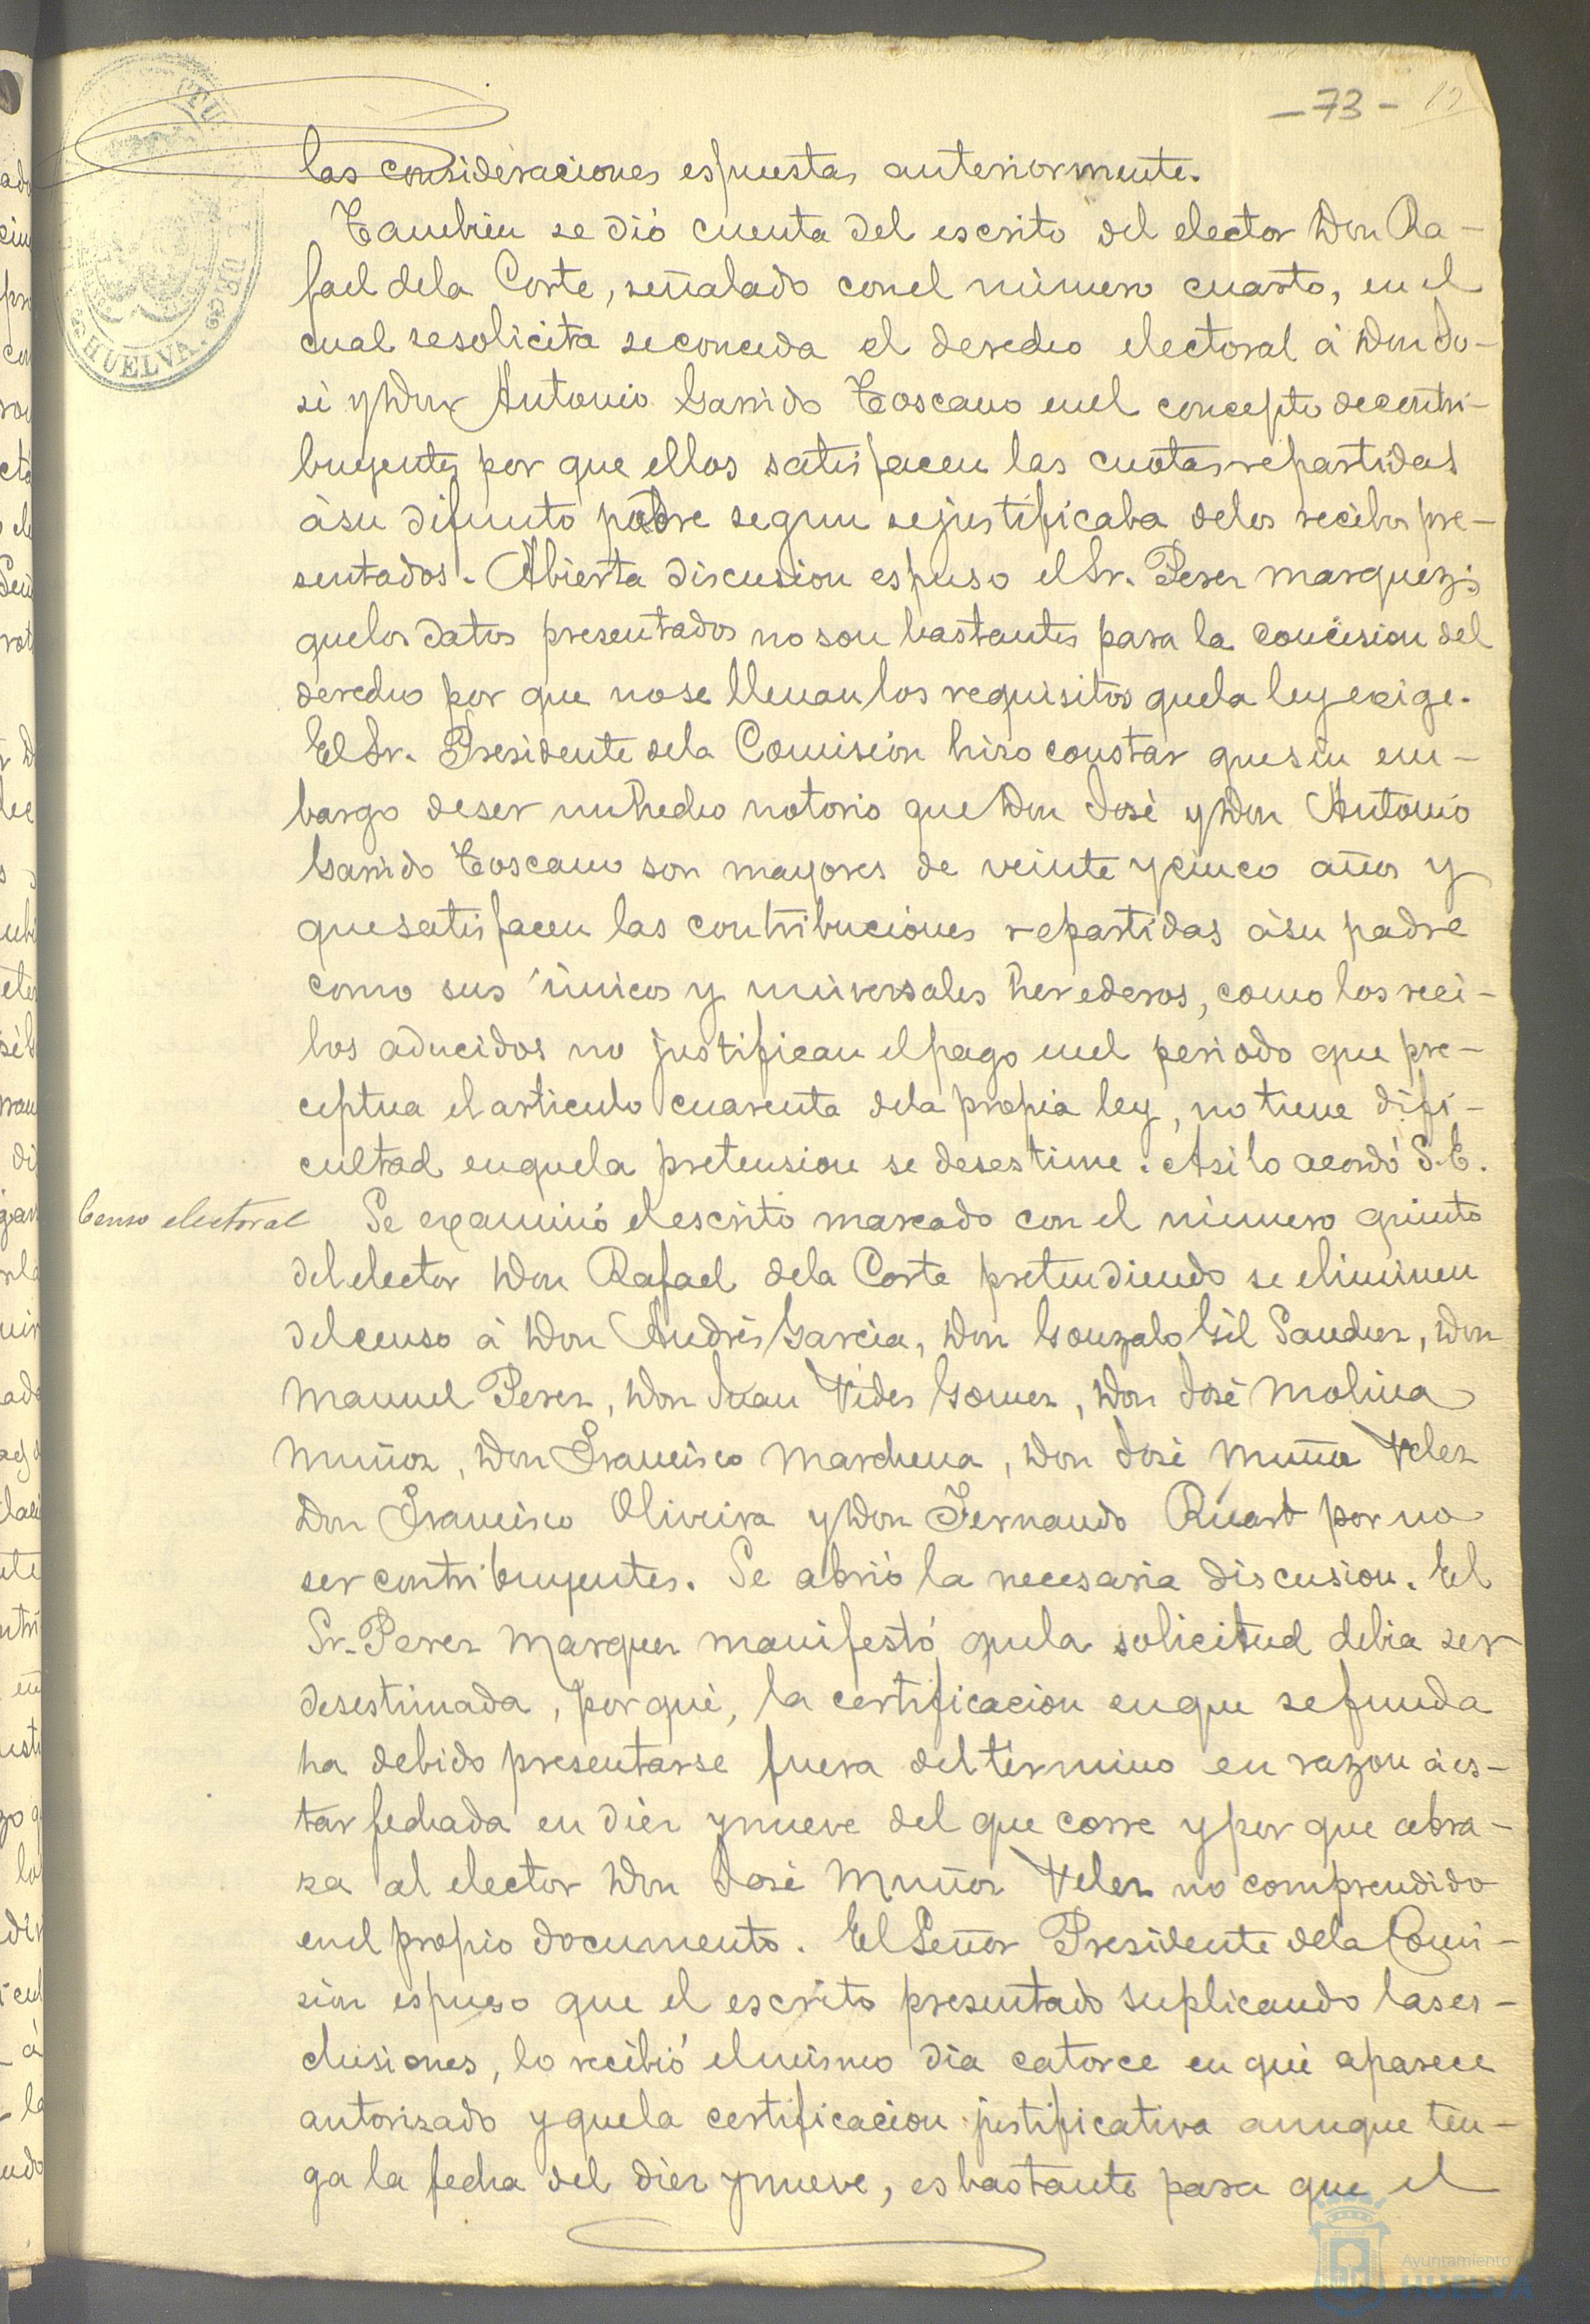 -73-
las consideraciones espuestas anteriormente.
Tambien se dió cuenta del escrito del elector Don Ra-
fael de la Corte, señalado con el número cuarto, en el
cual se solicita se conceda el derecho electoral á Don Jo-
sé y Don Antonio Garrido Toscano en el concepto de contri-
buyentes por que ellos satisfacen las cuotas repartidas
á su difunto padre segun se justificaba de los recibos pre-
sentados. Abierta discusion espuso el Sr. Perez Marquez;
que los datos presentados no son bastantes para la concesion del
derecho por que no se llenan los requisitos que la ley exige.
El Sr. Presidente de la Comisión hizo constar que sin em-
bargo de ser un hecho notorio que Don José y Don Antonio
Garrido Toscano son mayores de veinte y cinco años y
que satisfacen las contribuciones repartidas á su padre
como sus únicos y universales herederos, como los reci-
bos aducidos no justifican el pago en el periodo que pre-
ceptua el articulo cuarenta de la propia ley, no tiene difi-
cultad en que la pretension se desestime. Asi lo acordó S.E.
Censo electoral
Se examinó el escrito marcado con el número quinto
del elector Don Rafael de la Corte pretendiendo se eliminen
del censo á Don Andrés Garcia, Don Gonzalo Gil Sanchez, Don
Manuel Perez, Don Juan Vides Gomez, Don José Molina
Muñoz, Don Francisco Marchena, Don José Muñoz Velez
Don Francisco Oliveira y Don Fernando Ricart por no
ser contribuyentes. Se abrió la necesaria discusion. El
Sr. Perez Marquez manifestó que la solicitud debia ser
desestimada, por que, la certificacion en que se funda
ha debido presentarse fuera del término en razon á es-
tar fechada en diez y nueve del que corre y por que abra-
za al elector Don José Muñoz Velez no comprendido
en el propio documento. El Señor Presidente de la Comi-
sion espuso que el escrito presentado suplicando las es-
clusiones, lo recibió el mismo dia catorce en que aparece
autorizado y que la certificacion justificativa aunque ten-
ga la fecha del diez y nueve, es bastante para que el
HUELVA.
Ayuntamiento
HUELVA